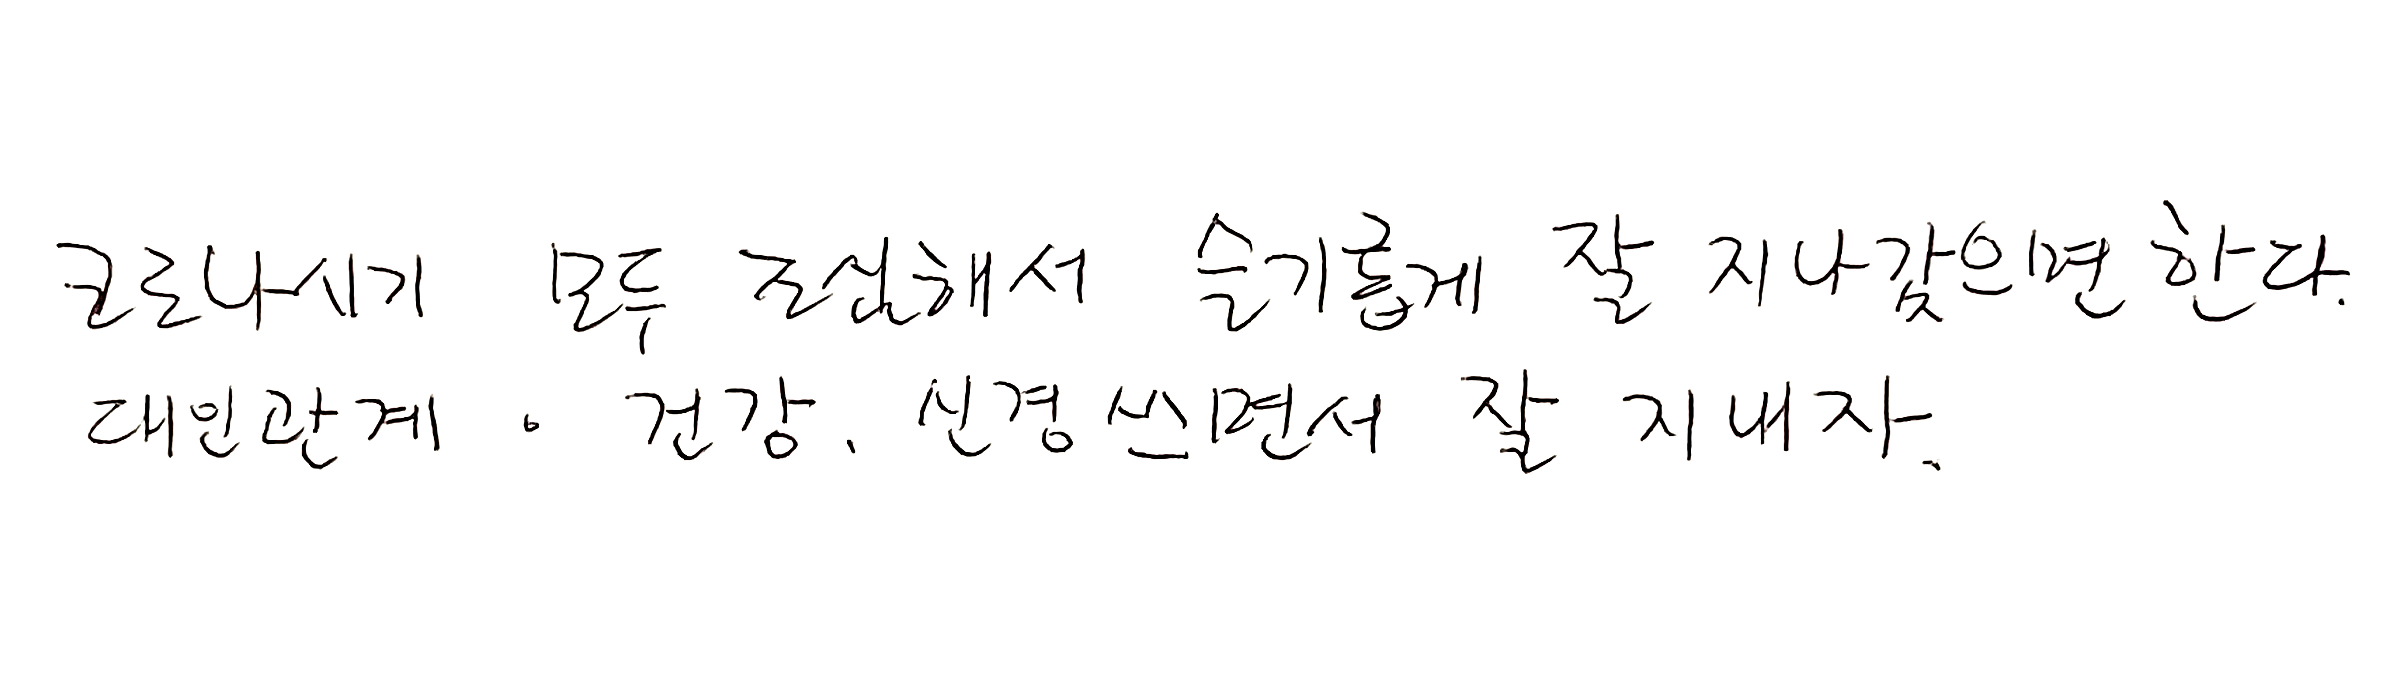 코로나시기 모두 조심해서 슬기롭게 잘 지나갔으면 한다.
대인관계 · 건강. 신경 쓰면서 잘 지내자.